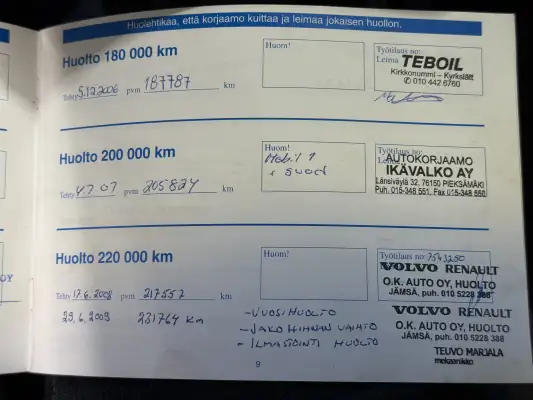 Huolehtikaa, että korjaamo kuittaa ja leimaa jokaisen huollon.
Huolto 180 000 km
Huom!
Työtilaus no:
Leima TEBOIL
Kirkkonummi – Kyrkslätt
✆ 010 442 6760
Tehty 5.12.2006 pvm 187787 km
Huolto 200 000 km
Huom!
Mobil 1
+ suod
Työtilaus no:
Leima
AUTOKORJAAMO
IKÄVALKO AY
Länsiväylä 32, 76150 PIEKSÄMÄKI
Puh. 015-348 551, Fax 015-348 550
Tehty 4.7.07 pvm 205824 km
Huolto 220 000 km
Huom!
Työtilaus no: 7543250
VOLVO RENAULT
O.K. AUTO OY, HUOLTO
JÄMSÄ, puh. 010 5228 388
Tehty 17.6.2008 pvm 217557 km
29.6.2009 231764 km
- VUOSIHUOLTO
- JAKOHIHNAN VAIHTO
- ILMASTOINTI HUOLTO
VOLVO RENAULT
O.K. AUTO OY, HUOLTO
JÄMSÄ, puh. 010 5228 388
TEUVO MARJALA
mekaanikko
9
OY